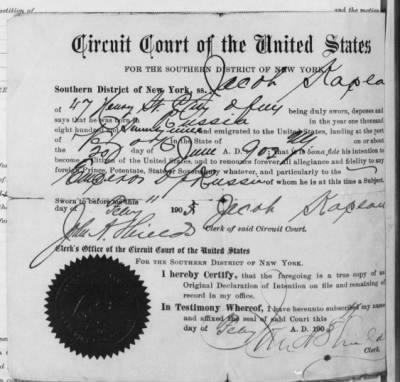 petition of and the motion
Circuit Court of the United States
FOR THE SOUTHERN DISTRICT OF NEW YORK.
Southern District of New York, ss. Jacob Kaplan
of 47 Henry St City of being duly sworn, deposes and
says that he was born in Russia in the year one thousand
eight hundred and Seventy nine and emigrated to the United States, landing at the port
of in the State of NY on or about
the day of June A. D. that it is bona fide his intention to
become a Citizen of the United States, and to renounce forever all allegiance and fidelity to any
foreign Prince, Potentate, State or Sovereignty whatever, and particularly to the
Emperor of Russia of whom he is at this time a Subject.
Sworn to before me this 11
day of 190 Jacob Kaplan
John A. Shields Clerk of said Circuit Court.
Clerk's Office of the Circuit Court of the United States
FOR THE SOUTHERN DISTRICT OF NEW YORK.
I hereby Certify, that the foregoing is a true copy of an
Original Declaration of Intention on file and remaining of
record in my office.
In Testimony Whereof, I have hereunto subscribed my name
and affixed the seal of said Court this
day of A. D. 190
John A. Shields
Clerk